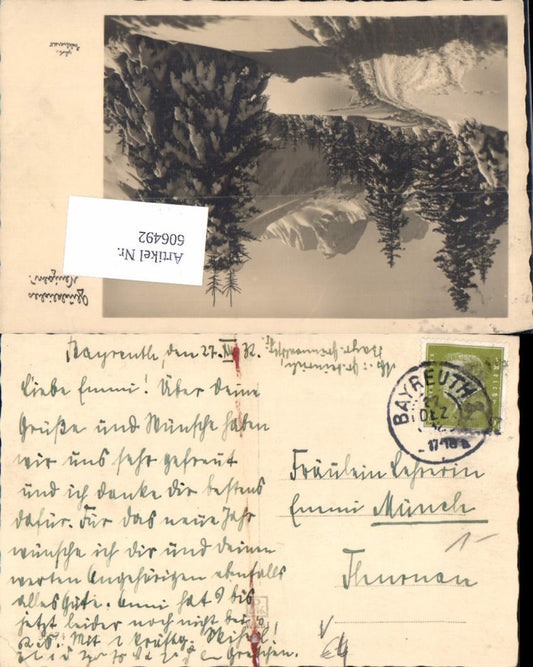 Glückliches
Neujahr!
Artikel Nr.
606492
Bayreuth, den 27. XII. 32.
Liebe Emmi! Über deine
Grüße und Wünsche haben
wir uns sehr gefreut
und ich danke dir bestens
dafür. Für das neue Jahr
wünsche ich dir und deinen
werten Angehörigen ebenfalls
alles Gute. Emmi hat 9 bis
jetzt leider noch nicht be-
Mit 1 kräftg.
Gretchen.
BAYREUTH
27
DEZ
17-18
Fräulein Lehrerin
Emmi Münch
Thurnau
1-